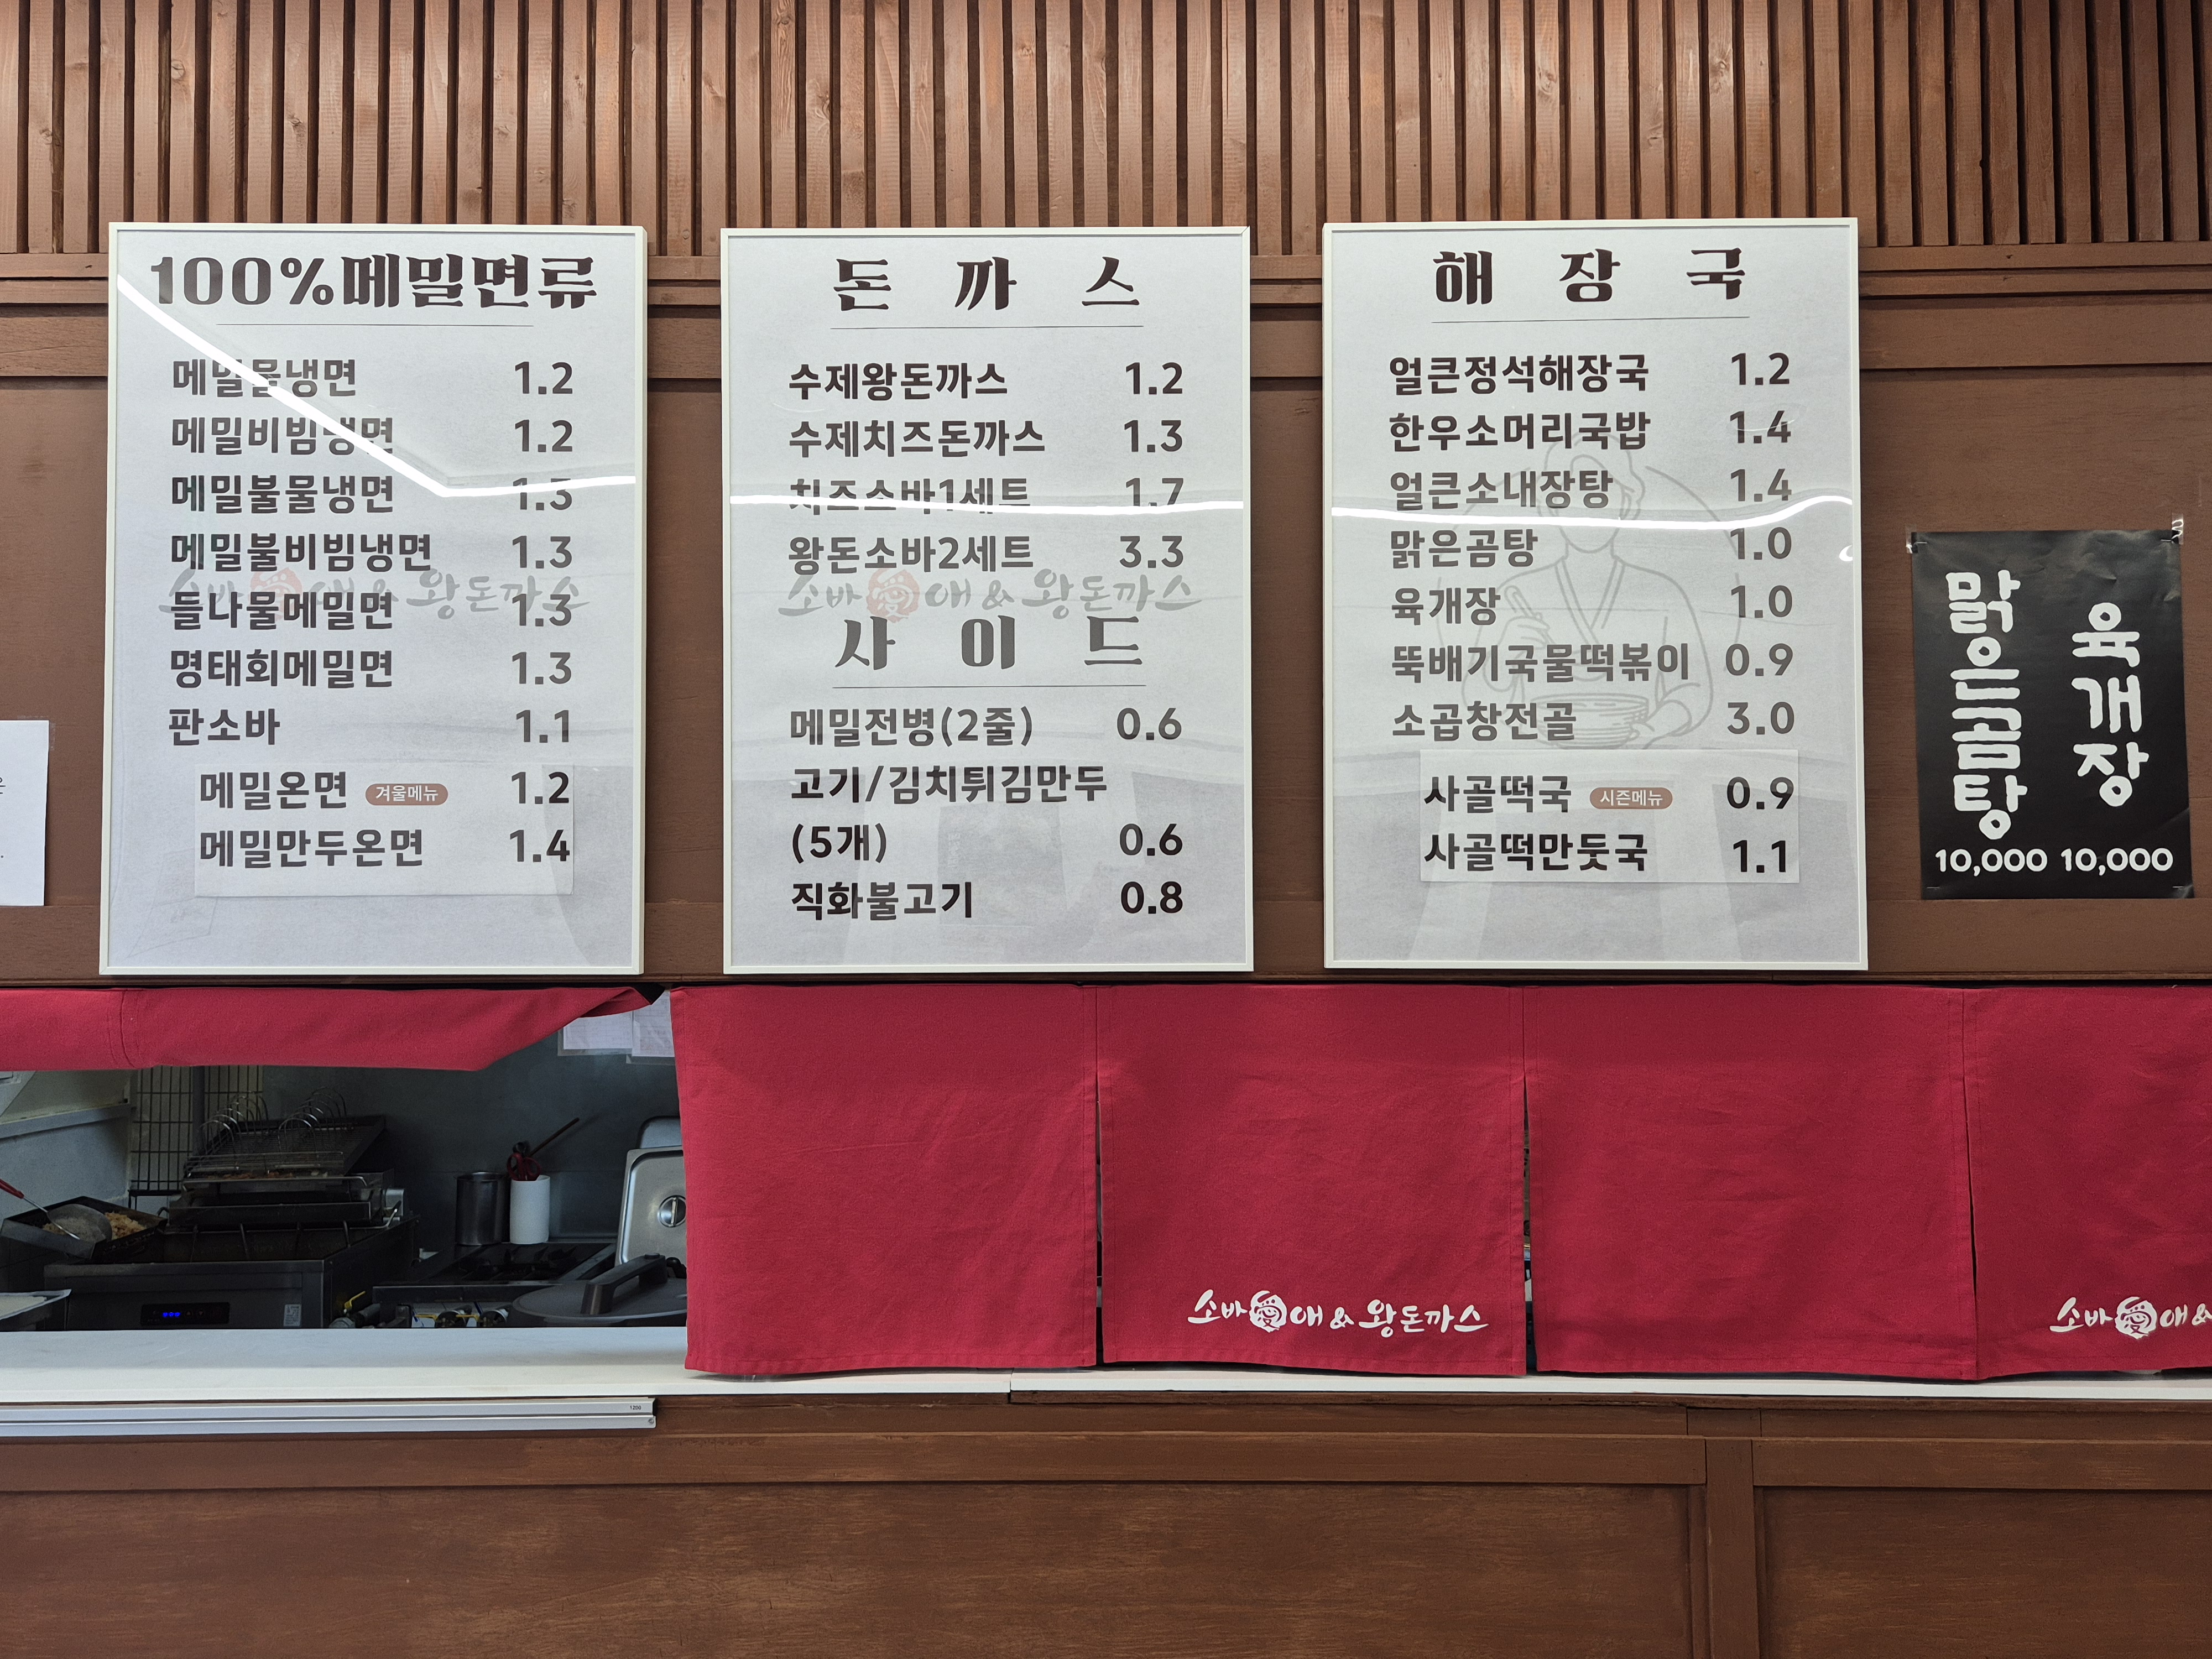 100%메밀면류
메밀물냉면 1.2
메밀비빔냉면 1.2
메밀불물냉면 1.3
메밀불비빔냉면 1.3
들나물메밀면 1.3
명태회메밀면 1.3
판소바 1.1
메밀온면 겨울메뉴 1.2
메밀만두온면 1.4
소바愛애&왕돈까스
돈까스
수제왕돈까스 1.2
수제치즈돈까스 1.3
치즈소바1세트 1.7
왕돈소바2세트 3.3
소바愛애&왕돈까스
사이드
메밀전병(2줄) 0.6
고기/김치튀김만두
(5개) 0.6
직화불고기 0.8
해장국
얼큰정석해장국 1.2
한우소머리국밥 1.4
얼큰소내장탕 1.4
맑은곰탕 1.0
육개장 1.0
뚝배기국물떡볶이 0.9
소곱창전골 3.0
사골떡국 시즌메뉴 0.9
사골떡만둣국 1.1
맑은곰탕
10,000
육개장
10,000
소바愛애&왕돈까스
소바愛애&
1200